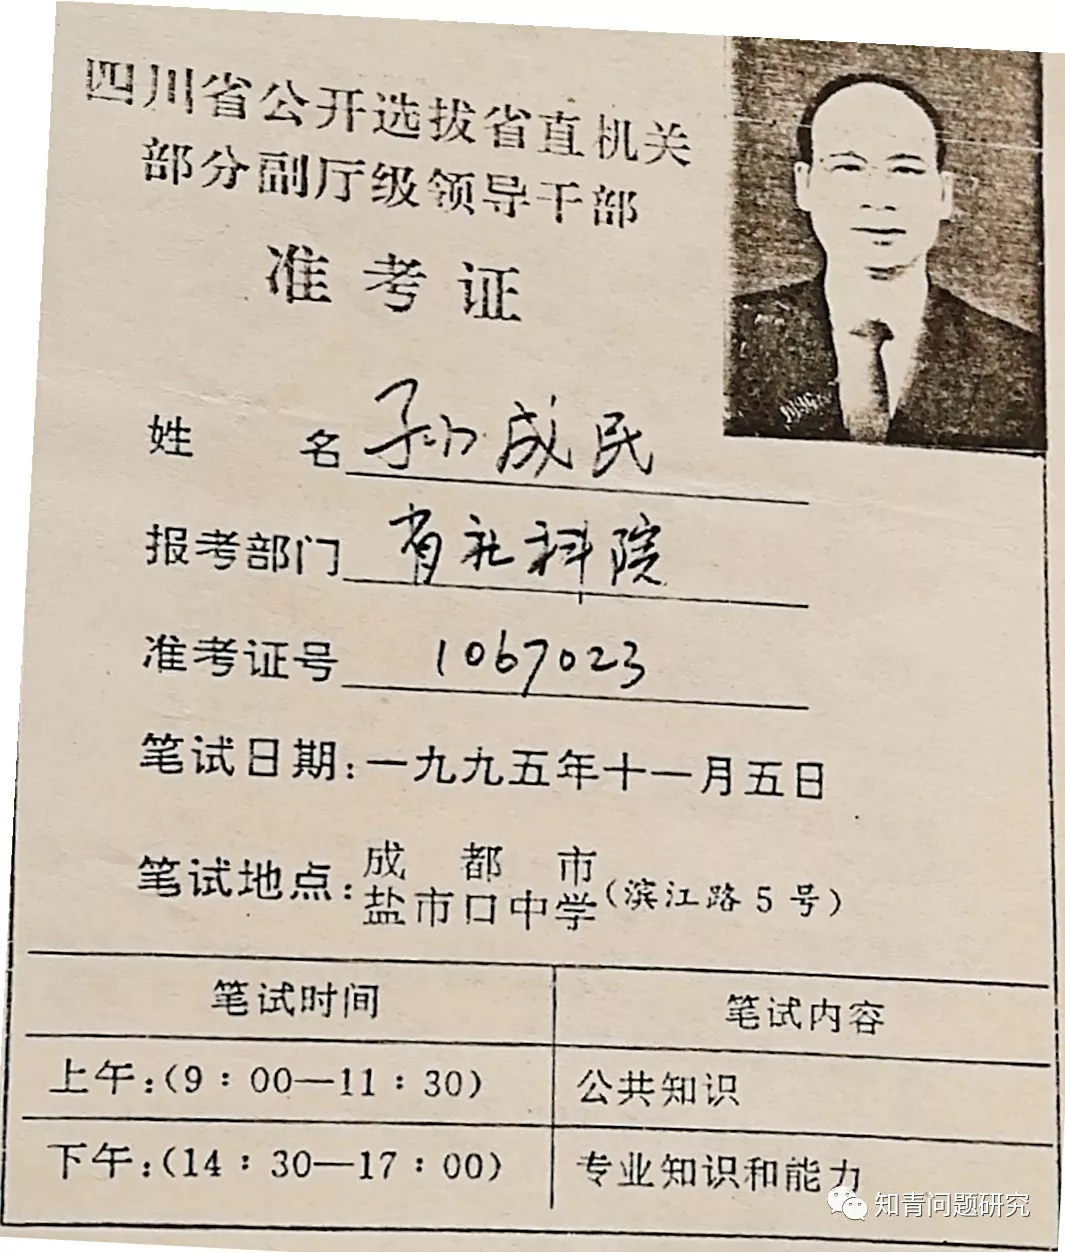 四川省公开选拔省直机关
部分副厅级领导干部
准考证
姓名 孙成民
报考部门 省社科院
准考证号 1067023
笔试日期:一九九五年十一月五日
笔试地点:成都市
盐市口中学(滨江路5号)
笔试时间 笔试内容
上午:(9:00—11:30) 公共知识
下午:(14:30—17:00) 专业知识和能力
知青问题研究